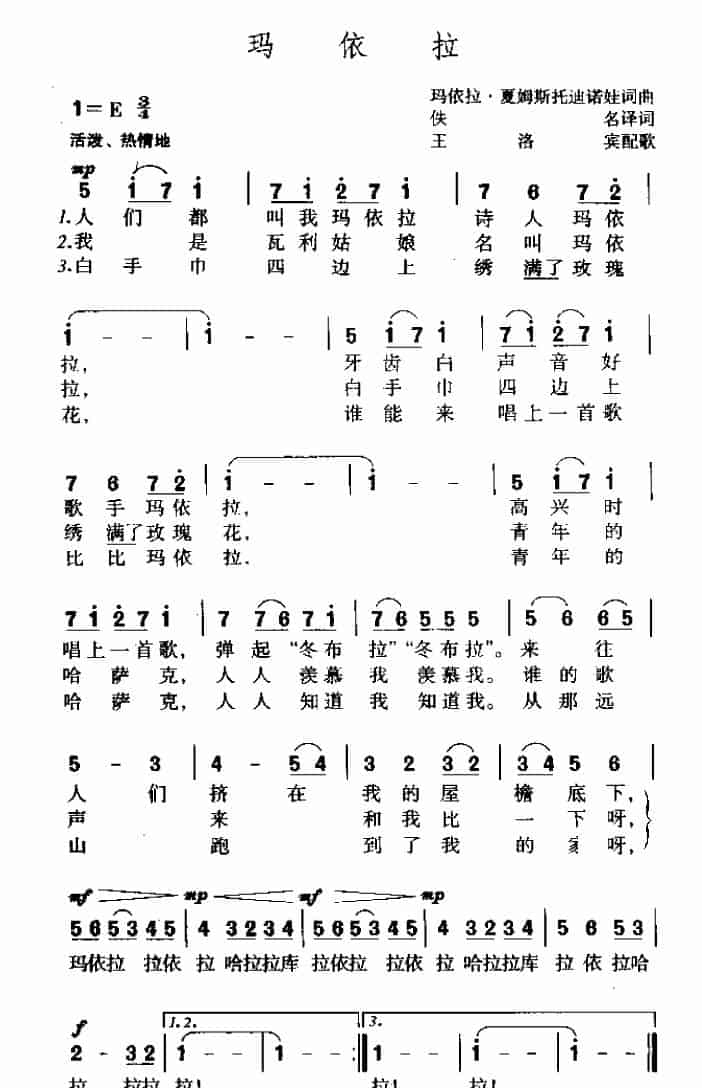 玛依拉
1=E 3/4
玛依拉·夏姆斯托迪诺娃词曲
佚名译词
活泼、热情地
王洛宾配歌
mp
5 i 7 i | 7 i 2 7 i | 7 6 7 2 |
1.人们都 叫我玛依拉 诗人玛依
2.我是瓦利姑娘 名叫玛依
3.白手巾四边上 绣满了玫瑰
i - - | i - - | 5 i 7 i | 7 i 2 7 i |
拉, 牙齿白 声音好
拉, 白手巾 四边上
花, 谁能来 唱上一首歌
7 6 7 2 | i - - | i - - | 5 i 7 i |
歌手玛依拉, 高兴时
绣满了玫瑰花, 青年的
比比玛依拉. 青年的
7 i 2 7 i | 7 7 6 7 i | 7 7 6 5 5 5 | 5 6 6 5 |
唱上一首歌, 弹起“冬布拉”“冬布拉”。来往
哈萨克, 人人羡慕我 羡慕我。谁的歌
哈萨克, 人人知道我 知道我。从那远
5 - 3 | 4 - 5 4 | 3 2 3 2 | 3 4 5 6 |
人们挤在我的屋檐底下,
声来和我比一下呀,
山跑到了我的家呀,
mf mp mf mp
5 6 5 3 4 5 | 4 3 2 3 4 | 5 6 5 3 4 5 | 4 3 2 3 4 | 5 6 5 3 |
玛依拉 拉依拉 哈拉拉库 拉依拉 拉依拉 哈拉拉库 拉依拉哈
f 1.2. 3.
2 - 3 2 | 1 - - | 1 - - :‖ 1 - - | 1 - - ‖
拉 拉拉 拉! 拉! 拉!